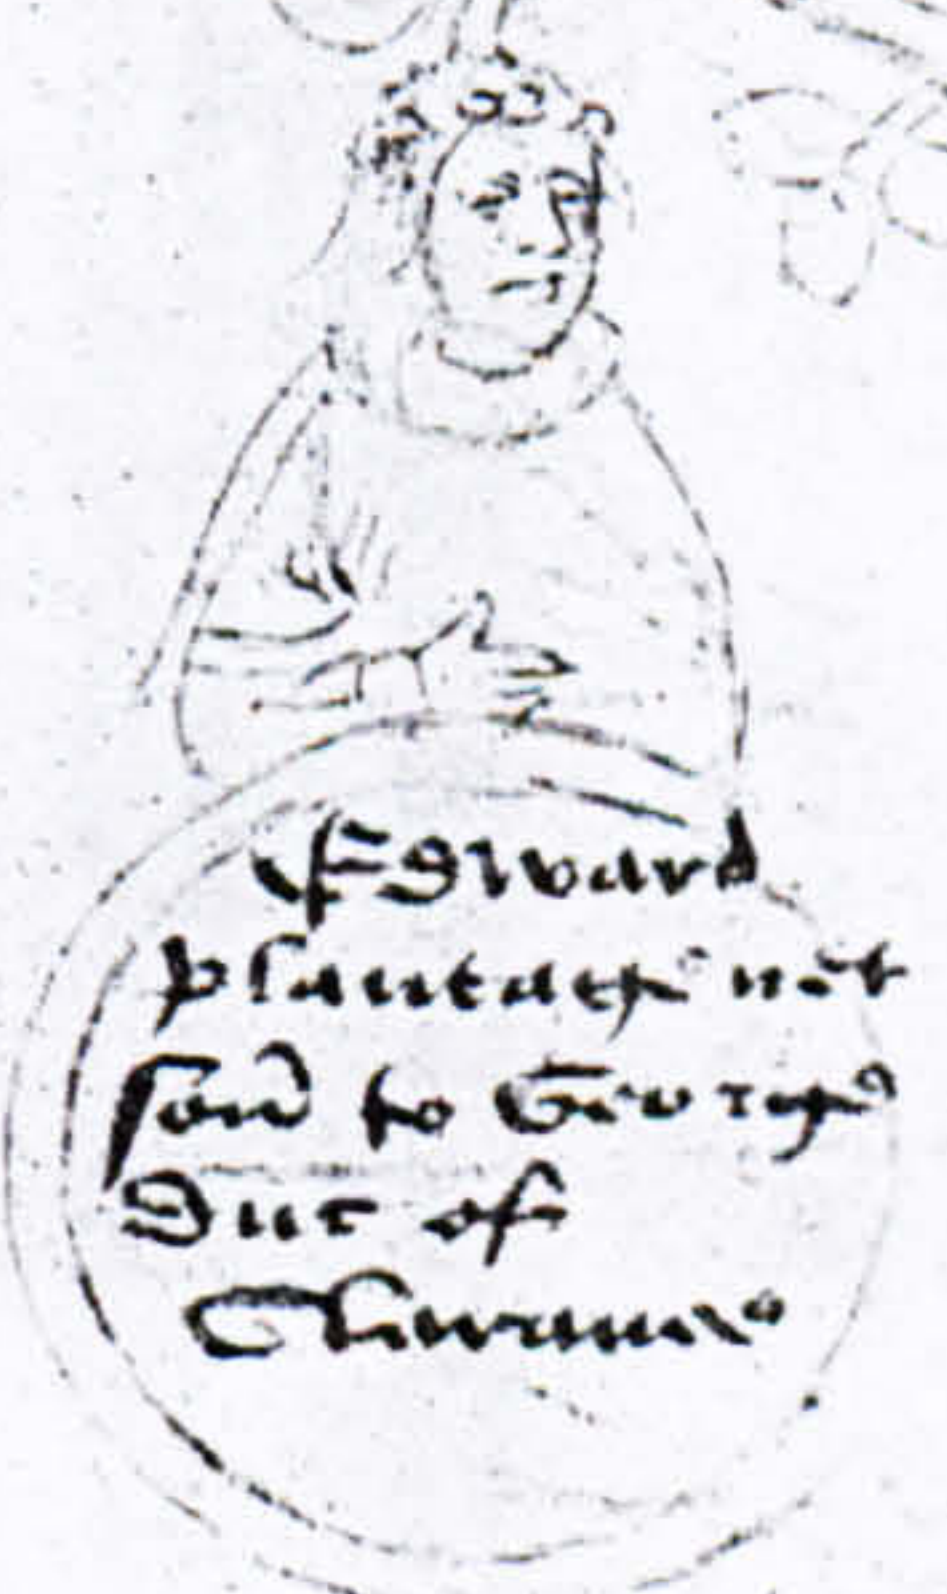 Edward
plantagenet
son to George
Duc of
Clarence